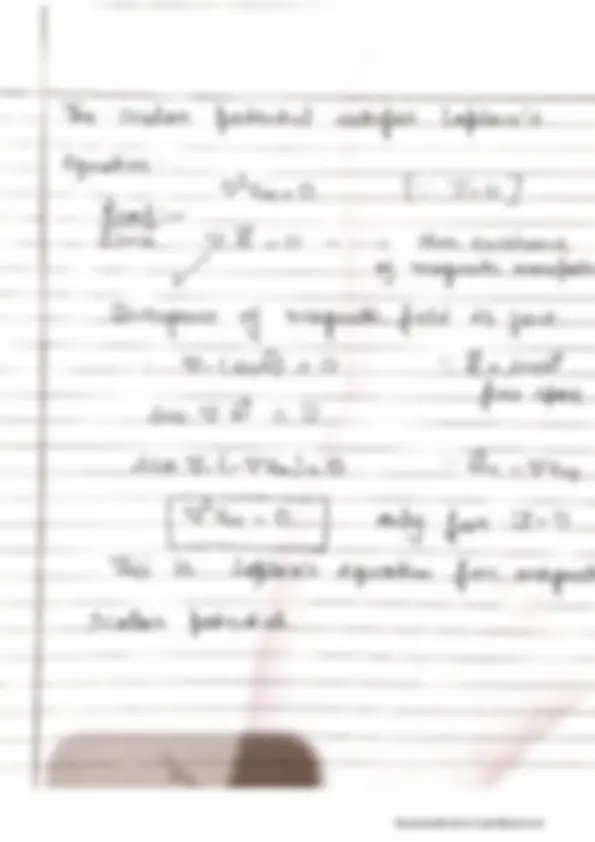 The scalar potential satisfies Laplace's
equation
∇²Vm = 0 [∵ J=0]
Proof:-
∇.B = 0 - - Non existence
of magnetic monopole
Divergence of magnetic field is zero
∇.(μ₀H) = 0
free space
μ₀ ∇.H = 0
μ₀ ∇.(-∇Vm) = 0
∇²Vm = 0 only for J=0
This is Laplace's equation for magnetic
scalar potential